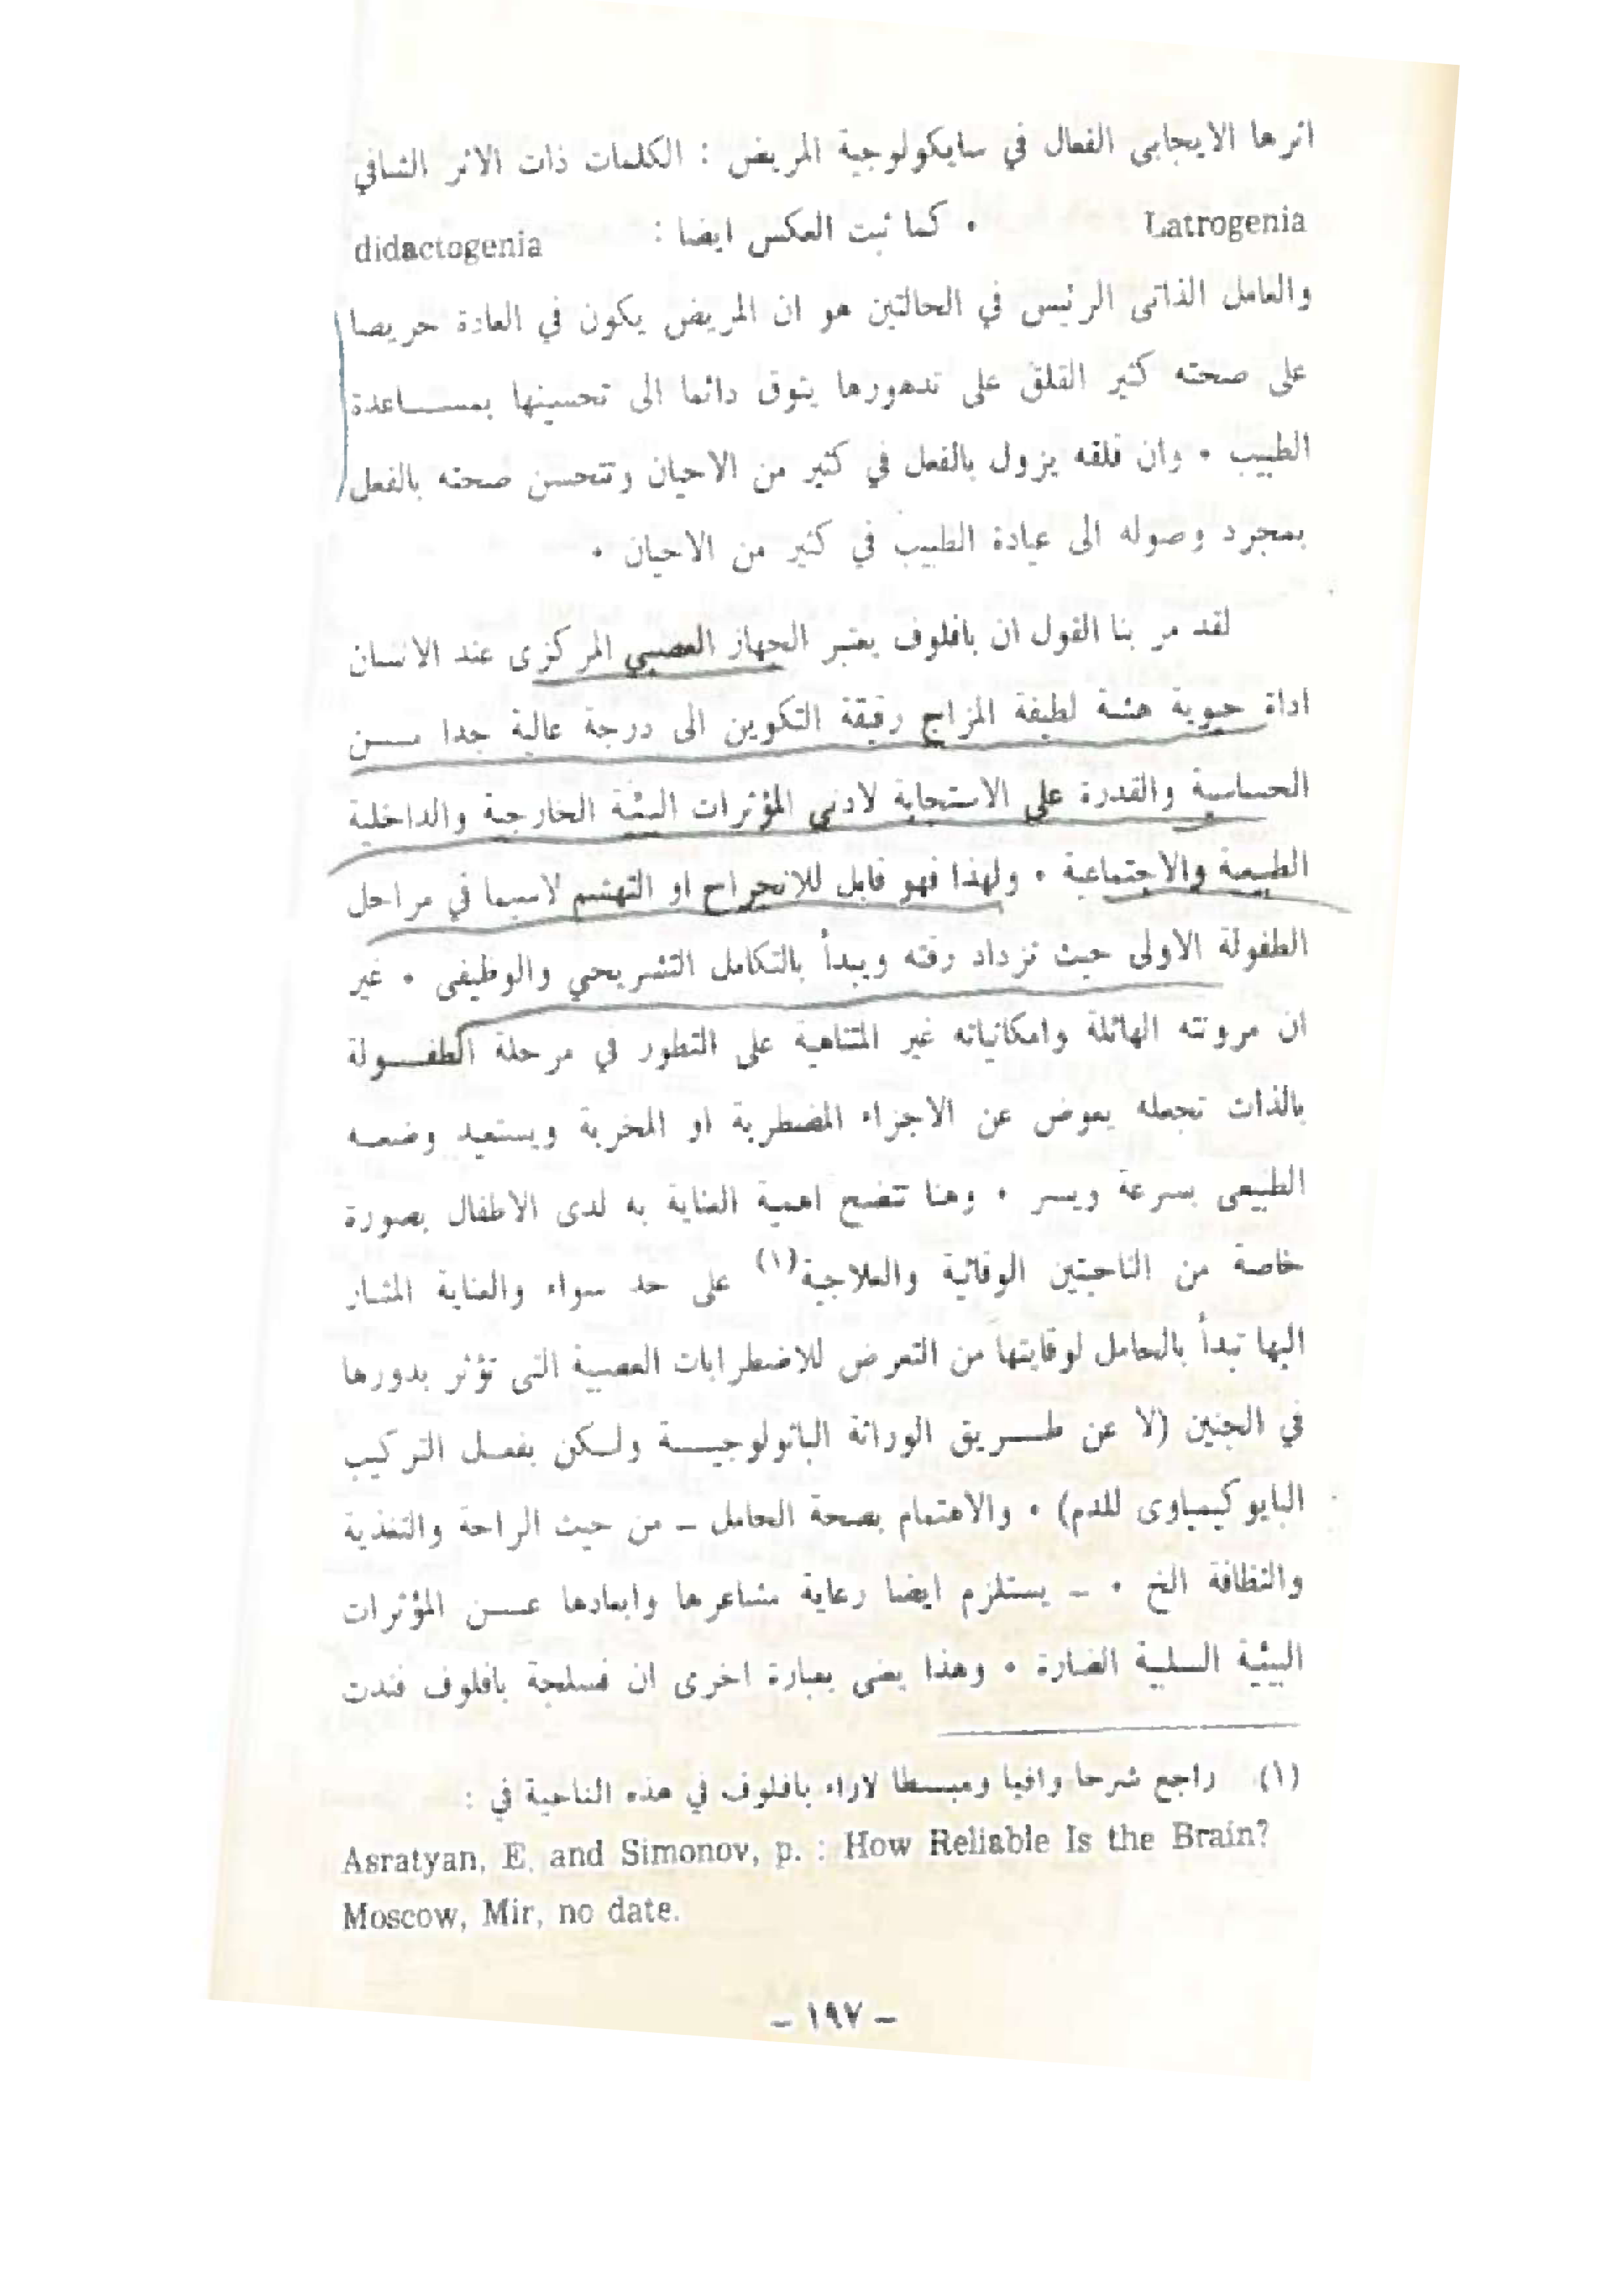 اثرها الايجابى الفعال في سايكولوجية المريض : الكلمات ذات الاثر الشافي
Latrogenia • كما ثبت العكس ايضا : didactogenia
والعامل الذاتى الرئيس في الحالتين هو ان المريض يكون في العادة حريصا
على صحته كثير القلق على تدهورها يتوق دائما الى تحسينها بمســـاعدة
الطبيب • وان قلقه يزول بالفعل في كثير من الاحيان وتتحسن صحته بالفعل
بمجرد وصوله الى عيادة الطبيب في كثير من الاحيان •
لقد مر بنا القول ان بافلوف يعتبر الجهاز العصبي المركزى عند الانسان
اداة حيوية هشة لطيفة المزاج رقيقة التكوين الى درجة عالية جدا مــــن
الحساسية والقدرة على الاستجابة لادنى المؤثرات البيئة الخارجية والداخلية
الطبيعية والاجتماعية • ولهذا فهو قابل للانجراح او التهشم لاسيما في مراحل
الطفولة الاولى حيث تزداد رقته ويبدأ بالتكامل التشريحي والوظيفى • غير
ان مرونته الهائلة وامكانياته غير المتناهية على التطور في مرحلة الطفـــولة
بالذات تجعله يعوض عن الاجزاء المضطربة او المخربة ويستعيد وضعـه
الطبيعى بسرعة ويسر • وهنا تتضح اهمية العناية به لدى الاطفال بصورة
خاصة من الناحيتين الوقائية والعلاجية(١) على حد سواء والعناية المشار
اليها تبدأ بالحامل لوقايتها من التعرض للاضطرابات العصبية التى تؤثر بدورها
في الجنين (لا عن طـــريق الوراثة الباثولوجيـــــة ولـكن بفعـل التركيب
البايوكيمياوى للدم) • والاهتمام بصحة الحامل ــ من حيث الراحة والتغذية
والنظافة الخ • ــ يستلزم ايضا رعاية مشاعرها وابعادها عـــن المؤثرات
البيئية السلبية الضارة • وهذا يعنى بعبارة اخرى ان فسلجة بافلوف فندت
(١) راجع شرحا وافيا ومبسطا لاراء بافلوف في هذه الناحية في :
Asratyan, E. and Simonov, p. : How Reliable Is the Brain?
Moscow, Mir, no date.
ــ ١٩٧ ــ